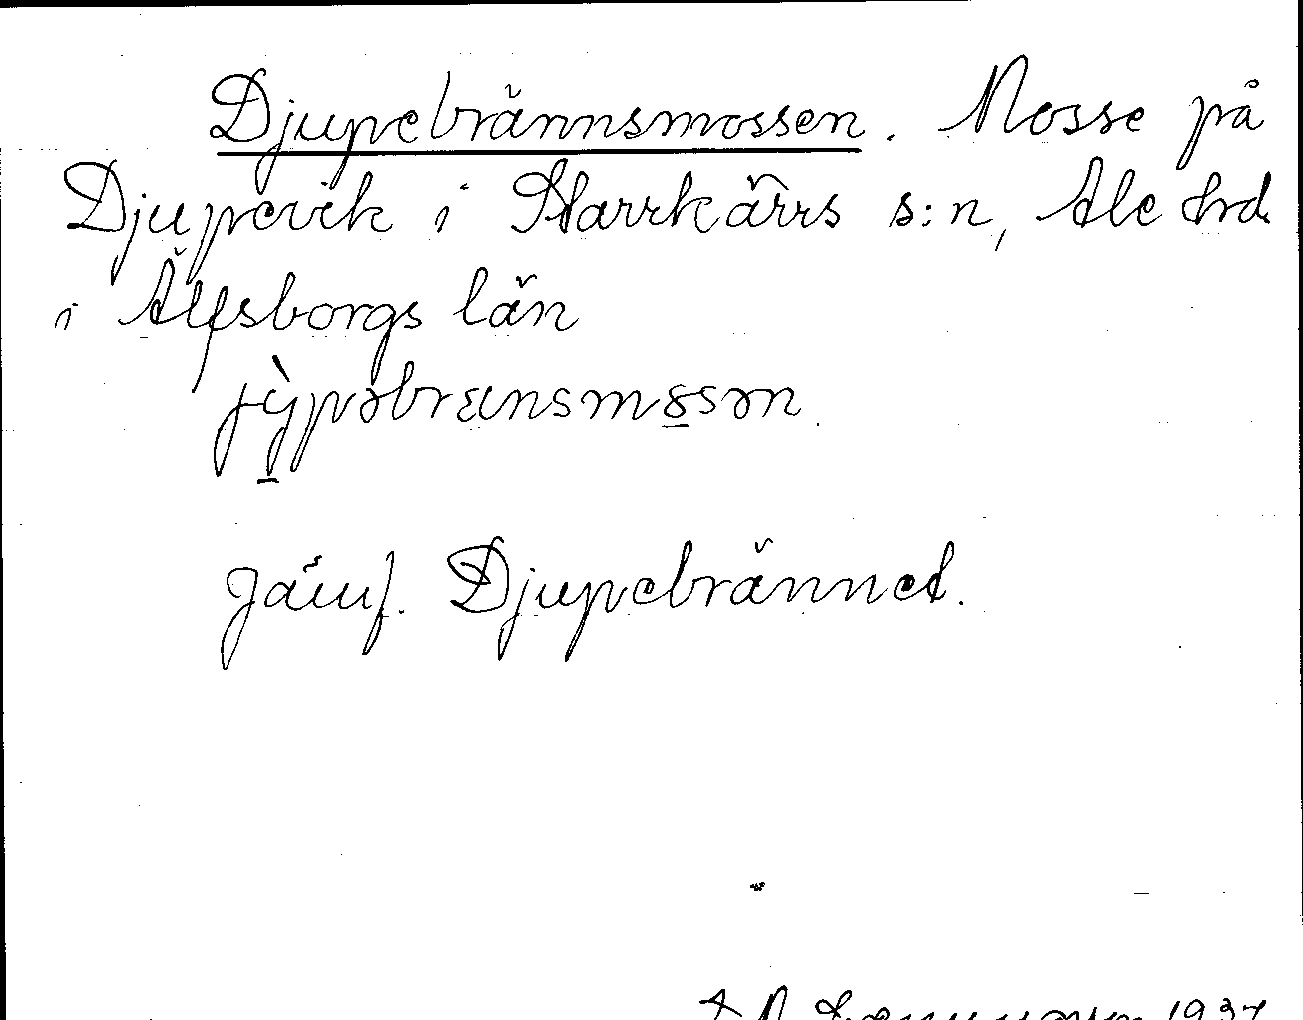 Djupebrännsmossen. Mosse på
Djupevik i Starrkärrs s:n, Ale hrd.
i Älfsborgs län
jỳpəbrænsmosən.
Jämf. Djupebrännet.
1937